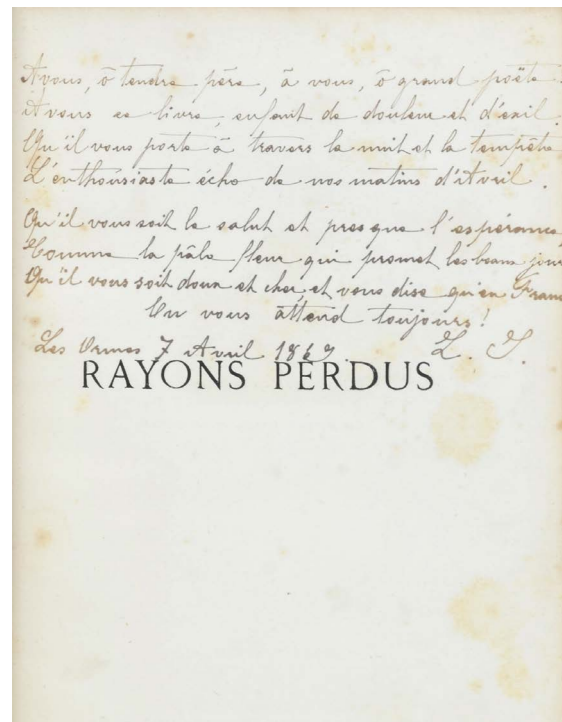 A vous, ô tendre père, à vous, ô grand poëte
A vous ce livre, enfant de douleur et d'exil.
Qu'il vous porte à travers la nuit et la tempête
L'enthousiaste écho de nos matins d'Avril.
Qu'il vous soit le salut et presque l'espérance,
Comme la pâle fleur qui promet les beaux jour
Qu'il vous soit doux et cher, et vous dise qu'en Franc
On vous attend toujours!
Les Ormes 7 Avril 1869. L. S.
RAYONS PERDUS